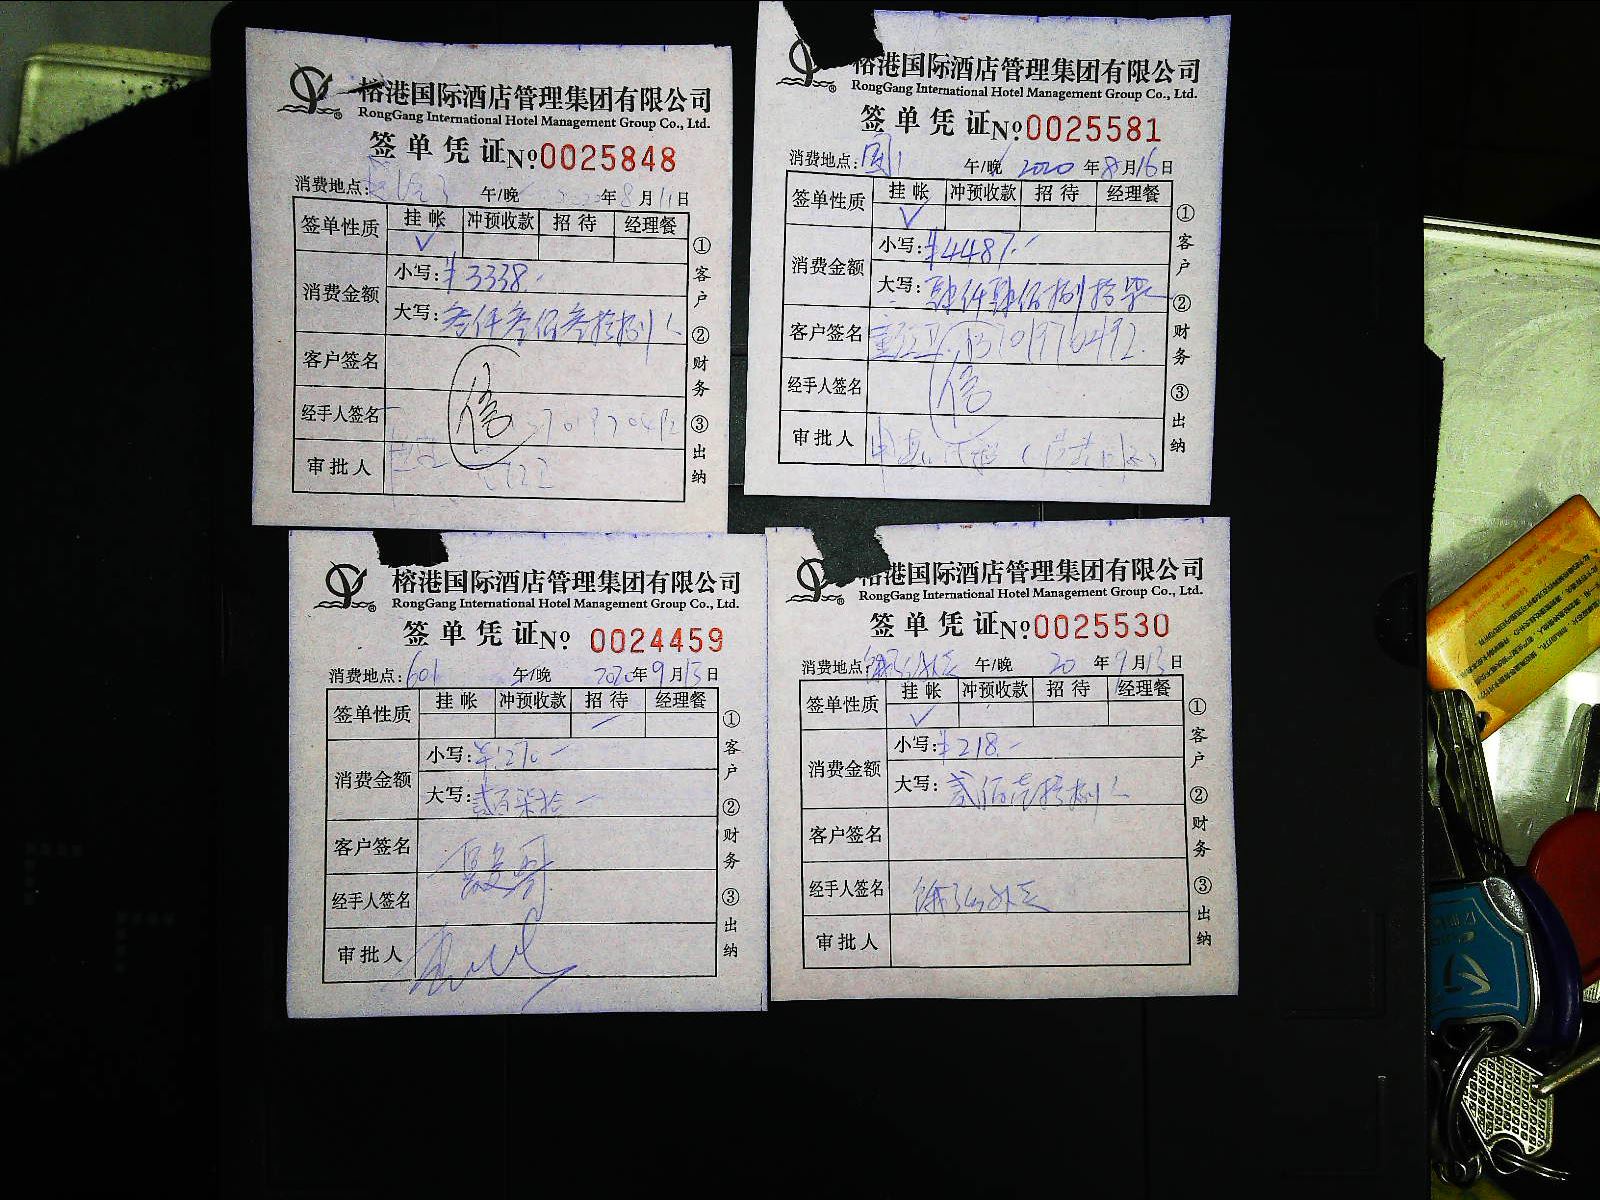 榕港国际酒店管理集团有限公司
RongGang International Hotel Management Group Co., Ltd.
签单凭证№0025848
消费地点: 午/晚 2020年8月11日
签单性质 挂帐 冲预收款 招待 经理餐
✓
消费金额 小写:¥3338.-
大写:叁仟叁佰叁拾捌
客户签名
经手人签名
审批人
①客户 ②财务 ③出纳
榕港国际酒店管理集团有限公司
RongGang International Hotel Management Group Co., Ltd.
签单凭证№0025581
消费地点: 午/晚 2020年8月16日
签单性质 挂帐 冲预收款 招待 经理餐
✓
消费金额 小写:¥4487.-
大写:肆仟肆佰捌拾柒
客户签名 13701970492
经手人签名
审批人
①客户 ②财务 ③出纳
榕港国际酒店管理集团有限公司
RongGang International Hotel Management Group Co., Ltd.
签单凭证№ 0024459
消费地点:601 午/晚 2020年9月13日
签单性质 挂帐 冲预收款 招待 经理餐
消费金额 小写:¥270-
大写:贰百柒拾
客户签名
经手人签名
审批人
①客户 ②财务 ③出纳
榕港国际酒店管理集团有限公司
RongGang International Hotel Management Group Co., Ltd.
签单凭证№0025530
消费地点: 午/晚 20年9月13日
签单性质 挂帐 冲预收款 招待 经理餐
✓
消费金额 小写:¥218.-
大写:贰佰壹拾捌
客户签名
经手人签名
审批人
①客户 ②财务 ③出纳